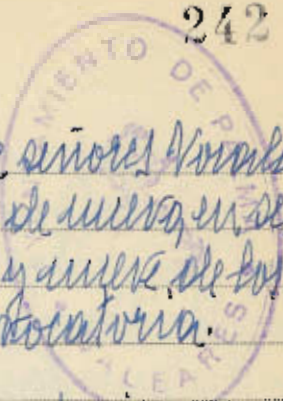 242
AYUNTAMIENTO DE PALMA
BALEARES
señores Vocales
de nueva, en se
y nueve de los
vocatoria.